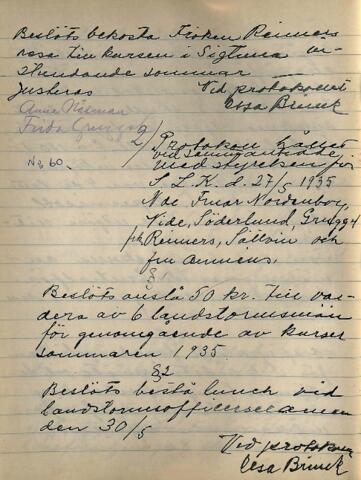 Beslöts bekosta Fröken Reiners
resa till kursen i Sigtuna
stundande sommar
Justeras Vid protokollet
Anna Näsman Elsa Brinck
Frida
No 60. Protokoll hållet
vid sammanträde
med styrelsen för
S. L. K. d. 27/5 1935
Nde Fruar Nordenborg,
Vide, Söderlund,
frk Reiners, Sallvin och
fru
§
Beslöts anslå 50 kr. till var-
dera av 6 landstormsmän
för genomgående av kurser
sommaren 1935.
§2
Beslöts bestå lunch vid
landstormsofficers
den 30/5
Vid protokoll
Elsa Brinck